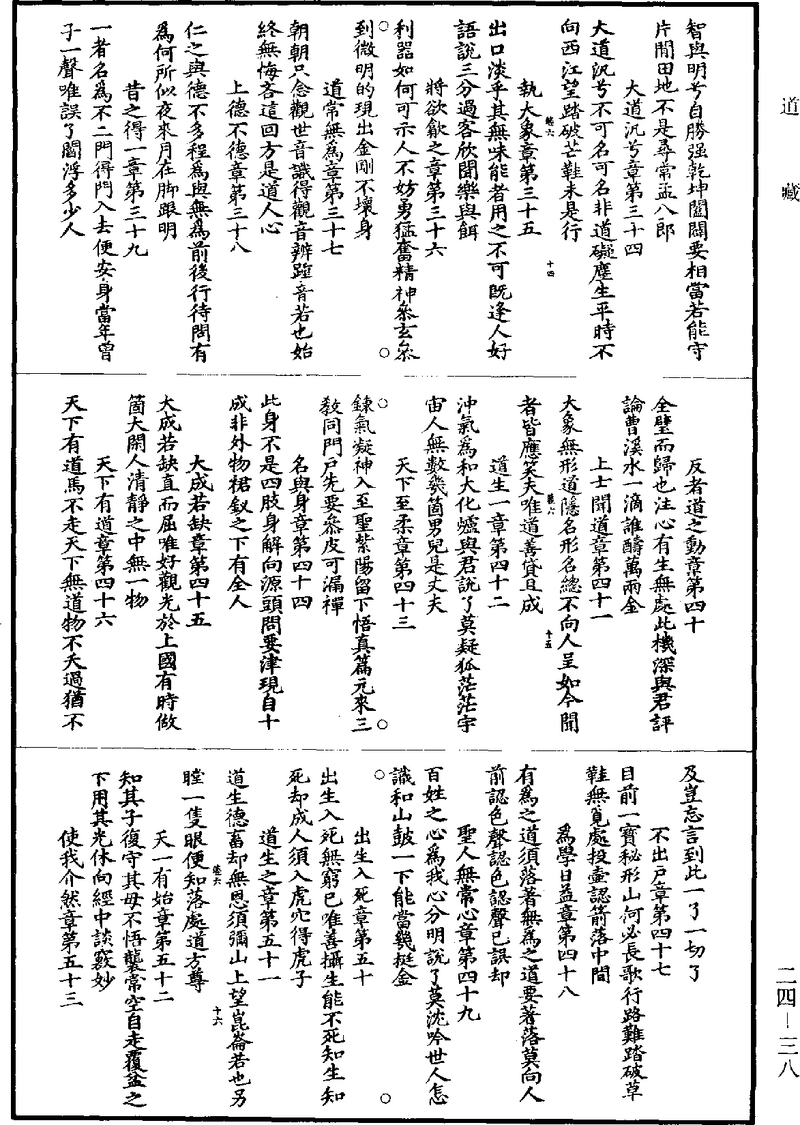 道藏
智與明兮自勝强乾坤闔闢要相當若能守
片閒田地不是尋常孟八郎
大道汎兮章第三十四
大道汎兮不可名可名非道礙塵生平時不
向西江望踏破芒鞋未是行
執大象章第三十五
卷六
十四
出口淡乎其無味能者用之不可既逢人好
語說三分過客欣聞樂與餌
將欲歙之章第三十六
利器如何可示人不妨勇猛奮精神叅玄叅
到微明的現出金剛不壞身
道常無為章第三十七
朝朝只念觀世音識得觀音辨踵音若也始
終無悔吝這回方是道人心
上德不德章第三十八
仁之與德不多程為與無為前後行待問有
為何所似夜來月在脚跟明
昔之得一章第三十九
一者名為不二門得門入去便安身當年曾
子一聲唯誤了閻浮多少人
反者道之動章第四十
全璧而歸也注心有生無處此機深與君評
論曹溪水一滴誰酬萬兩金
上士聞道章第四十一
大象無形道隱名形名總不向人呈如今聞
者皆應笑夫唯道善貸且成
卷六
十五
道生一章第四十二
沖氣為和大化爐與君說了莫疑狐茫茫宇
宙人無數幾箇男兒是丈夫
天下至柔章第四十三
鍊氣凝神入至聖紫陽留下悟真篇元來三
教同門戶先要叅皮可漏禪
名與身章第四十四
此身不是四肢身解向源頭問要津現自十
成非外物裙釵之下有全人
大成若缺章第四十五
大成若缺直而屈唯好觀光於上國有時做
箇大閑人清靜之中無一物
天下有道章第四十六
天下有道馬不走天下無道物不夭過猶不
及豈忘言到此一了一切了
不出戶章第四十七
目前一寶秘形山何必長歌行路難踏破草
鞋無覓處投壷認箭落中間
為學日益章第四十八
有為之道須落著無為之道要著落莫向人
前認色聲認色認聲已誤却
聖人無常心章第四十九
百姓之心為我心分明說了莫沈吟世人怎
識和山皷一下能當幾挺金
出生入死章第五十
出生入死無窮已唯善攝生能不死知生知
死却成人須入虎穴得虎子
道生之章第五十一
道生德畜却無恩須彌山上望崑崙若也另
瞠一隻眼便知落處道方尊
卷六
十六
天一有始章第五十二
知其子復守其母不悟襲常空自走覆盆之
下用其光休向經中談竅妙
使我介然章第五十三
二四—三八